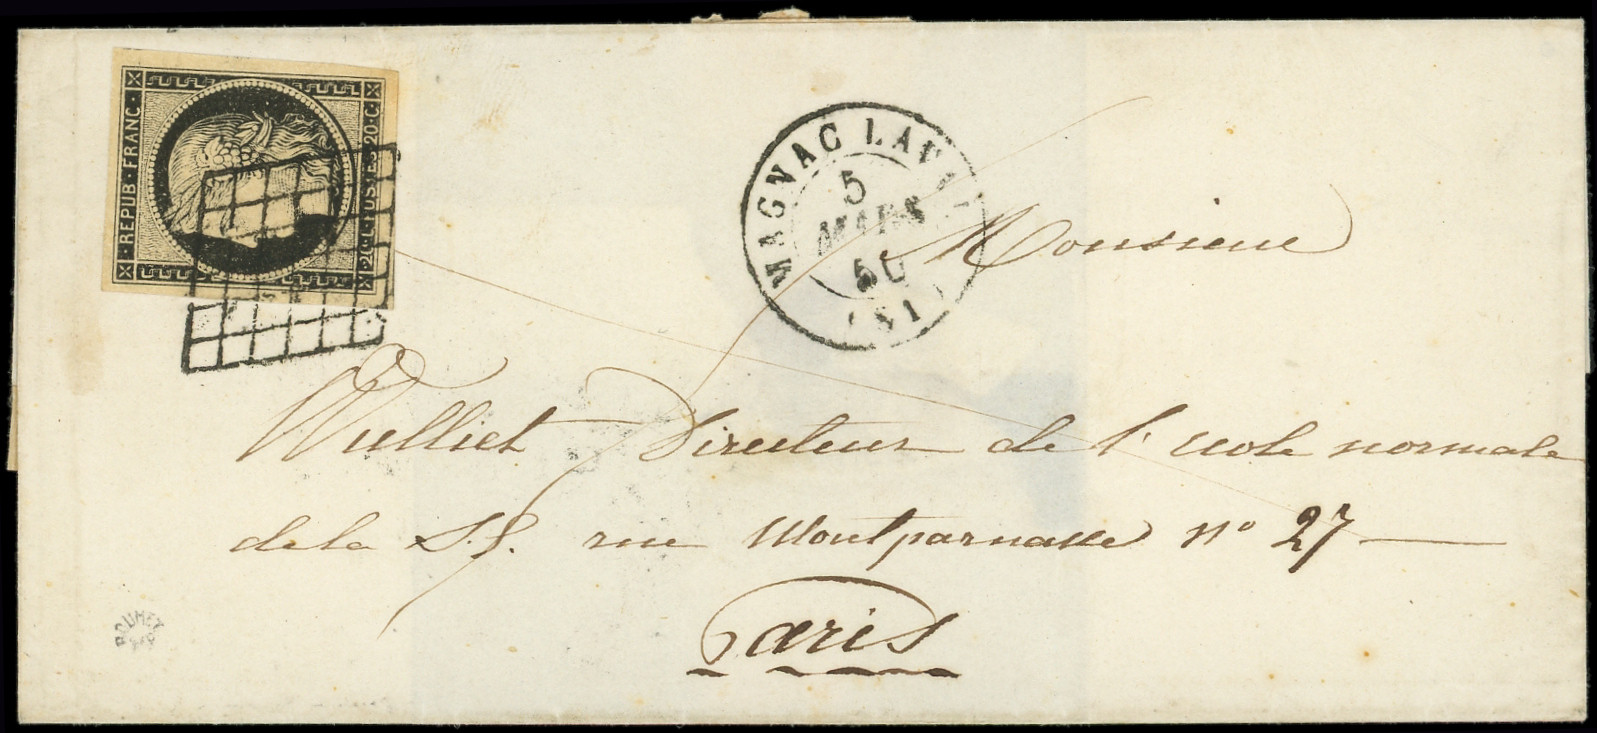 REPUB · FRANC ·
20 · C · POSTES · 20 · C ·
MAGNAC LAV
5
MARS
50
(81)
Monsieur
Wulliet Directeur de l'école normale
de la S.S. rue Montparnasse n° 27
Paris
ROUMET